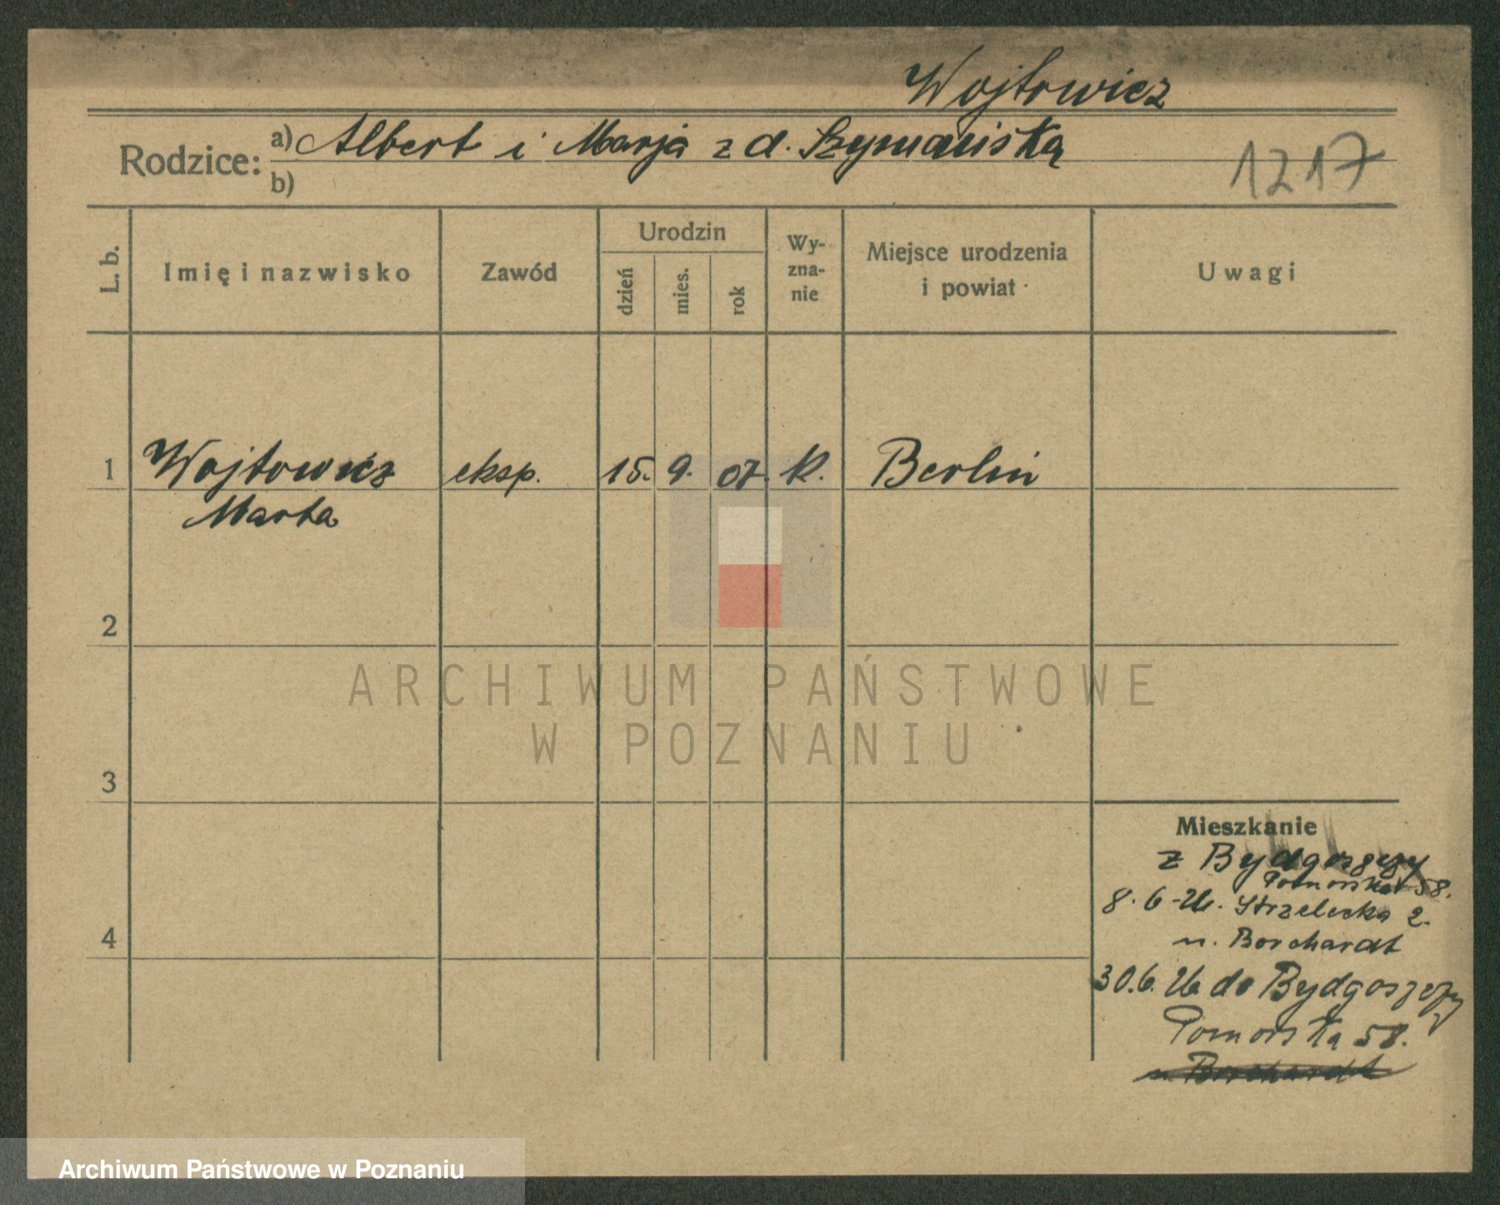 Wojtowicz
Rodzice: a) Albert i Marja z d. Szymańiską
b)
1217
L. b.
Imię i nazwisko
Zawód
Urodzin
dzień
mies.
rok
Wy-
zna-
nie
Miejsce urodzenia
i powiat
Uwagi
1 Wojtowicz eksp. 15. 9. 07. k. Berlin
Marta
2
3
4
ARCHIWUM PAŃSTWOWE
W POZNANIU
Mieszkanie
z Bydgoszczy
Pomorska 58.
8. 6. 26. Strzelecka 2.
u. Borchardt
30.6. 26 do Bydgoszczy
Pomorska 58.
u. Borchardt
Archiwum Państwowe w Poznaniu